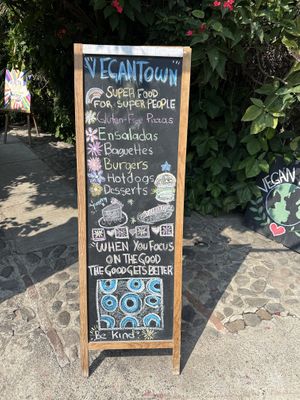 VEGANTOWN
SUPER FOOD
FOR SUPER PEOPLE
Gluten-Free Pizzas
Ensaladas
Baguettes
Burgers
Hotdogs
Desserts
Yummy
"WHEN YOU FOCUS
ON THE GOOD
THE GOOD GETS BETTER
Be Kind
VEGAN